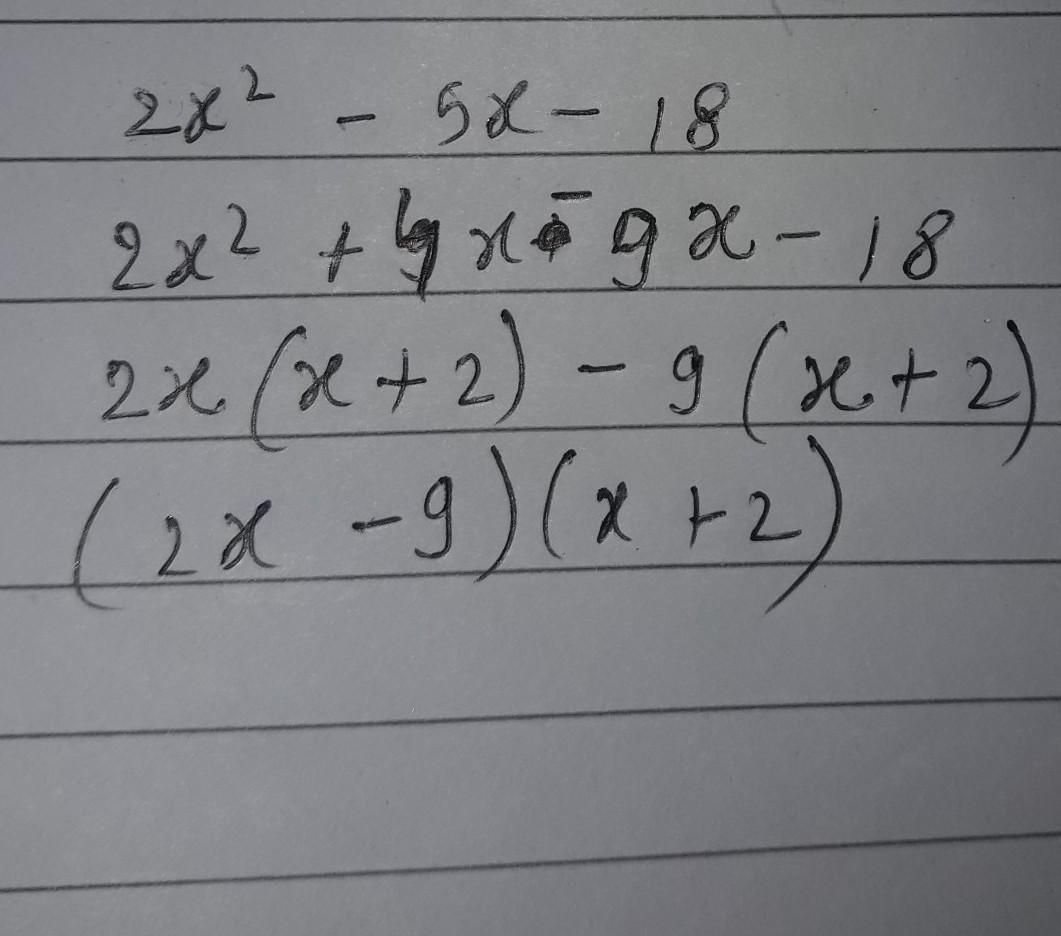 2x² - 5x - 18
2x² + 4x - 9x - 18
2x (x + 2) - 9 (x + 2)
(2x - 9) (x + 2)